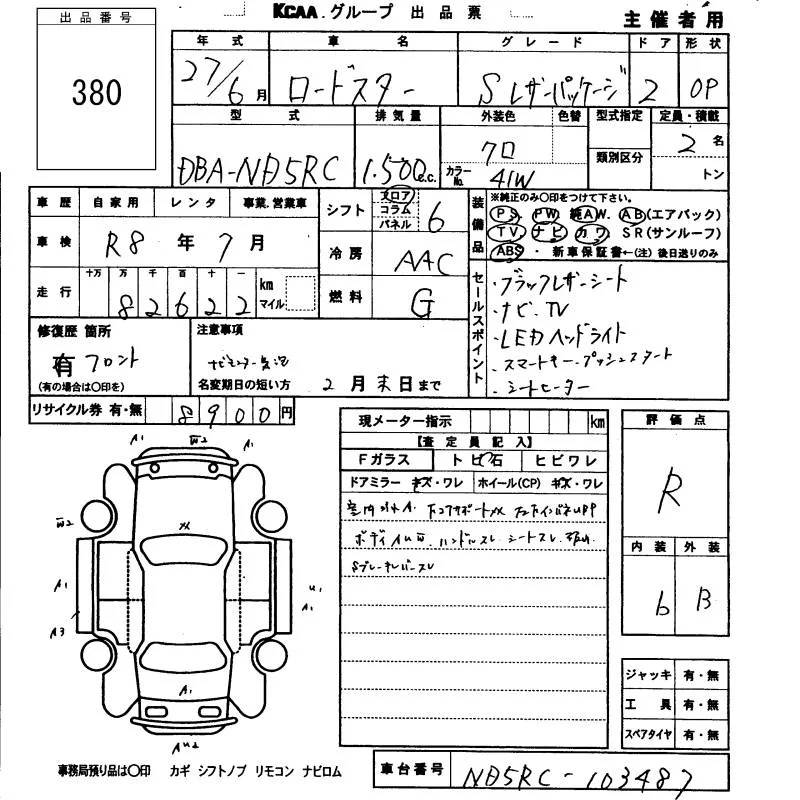 KCAA.グループ 出品票
主催者用
出品番号
380
年式 車名 グレード ドア 形状
27/6月 ロードスター Sレザーパッケージ 2 OP
型式 排気量 外装色 色替 型式指定 定員・積載
DBA-ND5RC 1.500c.c. クロ 類別区分 2名
カラーNo. 41W トン
車歴 自家用 レンタ 事業.営業車
シフト フロア コラム パネル 6
車検 R8年7月
冷房 AAC
走行 十万 万 千 百 十 一
82622 km マイル
燃料 G
装備品 ※純正のみ〇印をつけて下さい。
PS PW 純AW. AB(エアバック)
TV ナビ カワ SR(サンルーフ)
ABS・新車保証書←(注)後日送りのみ
セールスポイント
・ブラックレザーシート
・ナビ.TV
・LEDヘッドライト
・スマートキー.プッシュスタート
・シートヒーター
修復歴 箇所
有 フロント
(有の場合は〇印を)
注意事項
名変期日の短い方 2月末日まで
リサイクル券 有・無 8900円
現メーター指示 km
【査定員記入】
Fガラス トビ石 ヒビワレ
ドアミラー キズ・ワレ ホイール(CP) キズ・ワレ
ハンドルスレ シートスレ
評価点
R
内装 外装
b B
ジャッキ 有・無
工具 有・無
スペアタイヤ 有・無
A1 W2 A1
W2
A1
A3
U1
A1
A1
AU2
事務局預り品は〇印 カギ シフトノブ リモコン ナビロム
車台番号 ND5RC-103487